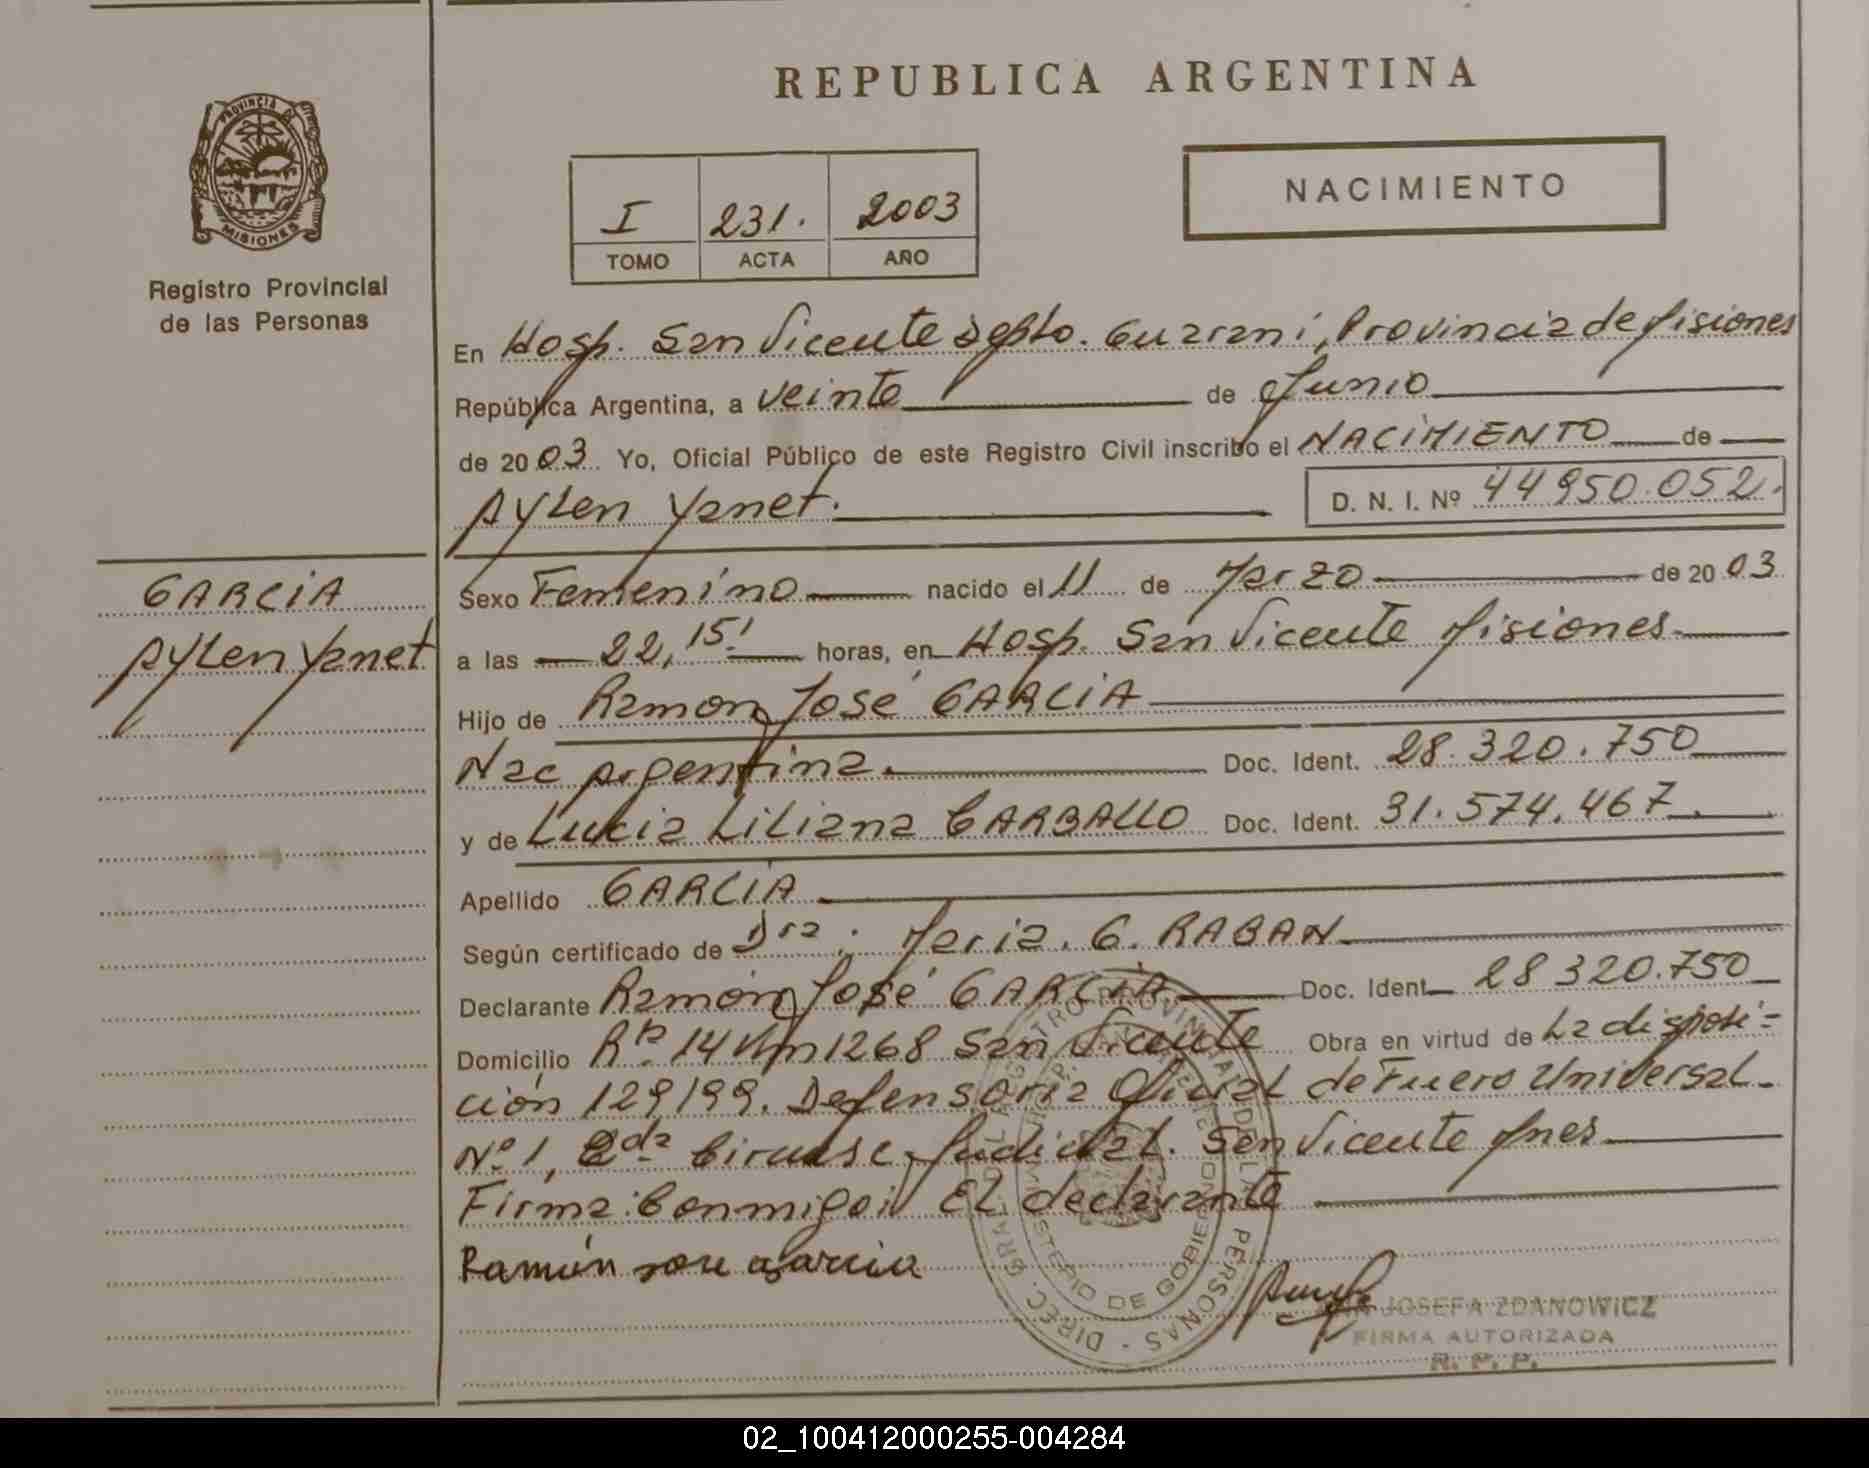 REPUBLICA ARGENTINA
PROVINCIA DE
MISIONES
Registro Provincial
de las Personas
NACIMIENTO
I 231. 2003
TOMO ACTA AÑO
En Hosp. San Vicente Depto. Guarani, Provincia de Misiones
República Argentina, a veinte de Junio
de 2003 Yo, Oficial Público de este Registro Civil inscribo el NACIMIENTO de
Aylen Yanet.
D. N. I. Nº 44950.052.
GARCIA
Aylen Yanet
Sexo Femenino nacido el 11 de Marzo de 2003
a las 22,15' horas, en Hosp. San Vicente Misiones
Hijo de Ramon José GARCIA
Nac Argentina. Doc. Ident. 28.320.750
y de Lucia Liliana CARBALLO Doc. Ident. 31.574.467.
Apellido GARCIA
Según certificado de Dra: Maria. G. RABAN
Declarante Ramón José GARCIA Doc. Ident 28320.750
Domicilio Rta. 14 Km 1268 San Vicente Obra en virtud de La disposi=
ción 129/99. Defensoria Oficial de Fuero Universal
Nº 1, 2da Circunsc. Judicial. San Vicente Mnes
Firma: Conmigo: El declarante
Ramón Jose Garcia
DIREC. GRAL. DEL REGISTRO PROVINCIAL DE LAS PERSONAS
MINISTERIO DE GOBIERNO
JOSEFA ZDANOWICZ
FIRMA AUTORIZADA
R. P. P.
02_100412000255-004284